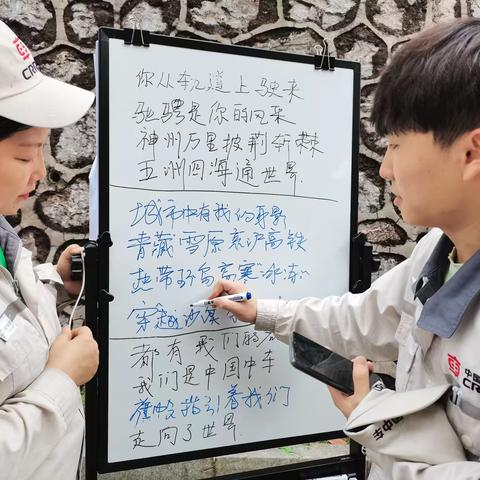 你从轨道上驶来
驰骋是你的风采
神州万里披荆斩棘
五洲四海通世界
城市中有我的身影
青藏雪原京沪高铁
热带环岛高寒“冰冻”
穿越沙漠
都有我们的
我们是中国中车
旗帜指引着我们
走向了世界